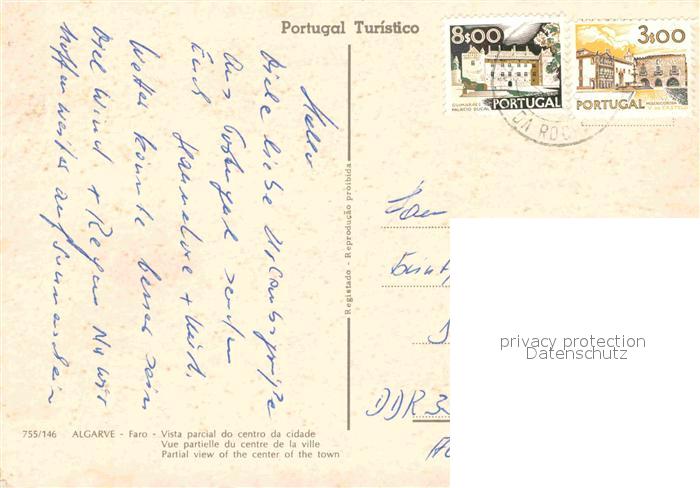 Portugal Turístico
8$00
GUIMARÃES
PALACIO DUCAL
PORTUGAL
3$00
PORTUGAL
MISERICORDIA
V. DO CASTELO
DA ROC
Hallo
Viele liebe Urlaubsgrüße
aus Portugal senden
Euch Hannelore +
Wetter könnte besser sein
Viel Wind + Regen Na wir
hoffen weiter auf Sonnenschein
Registado - Reprodução proibida
DDR
privacy protection
Datenschutz
755/146 ALGARVE - Faro - Vista parcial do centro da cidade
Vue partielle du centre de la ville
Partial view of the center of the town